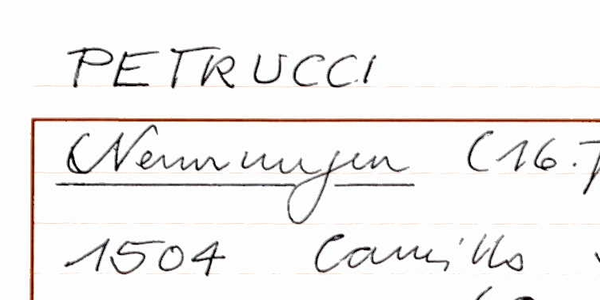 PETRUCCI
Nennungen (16.
1504 Camillo